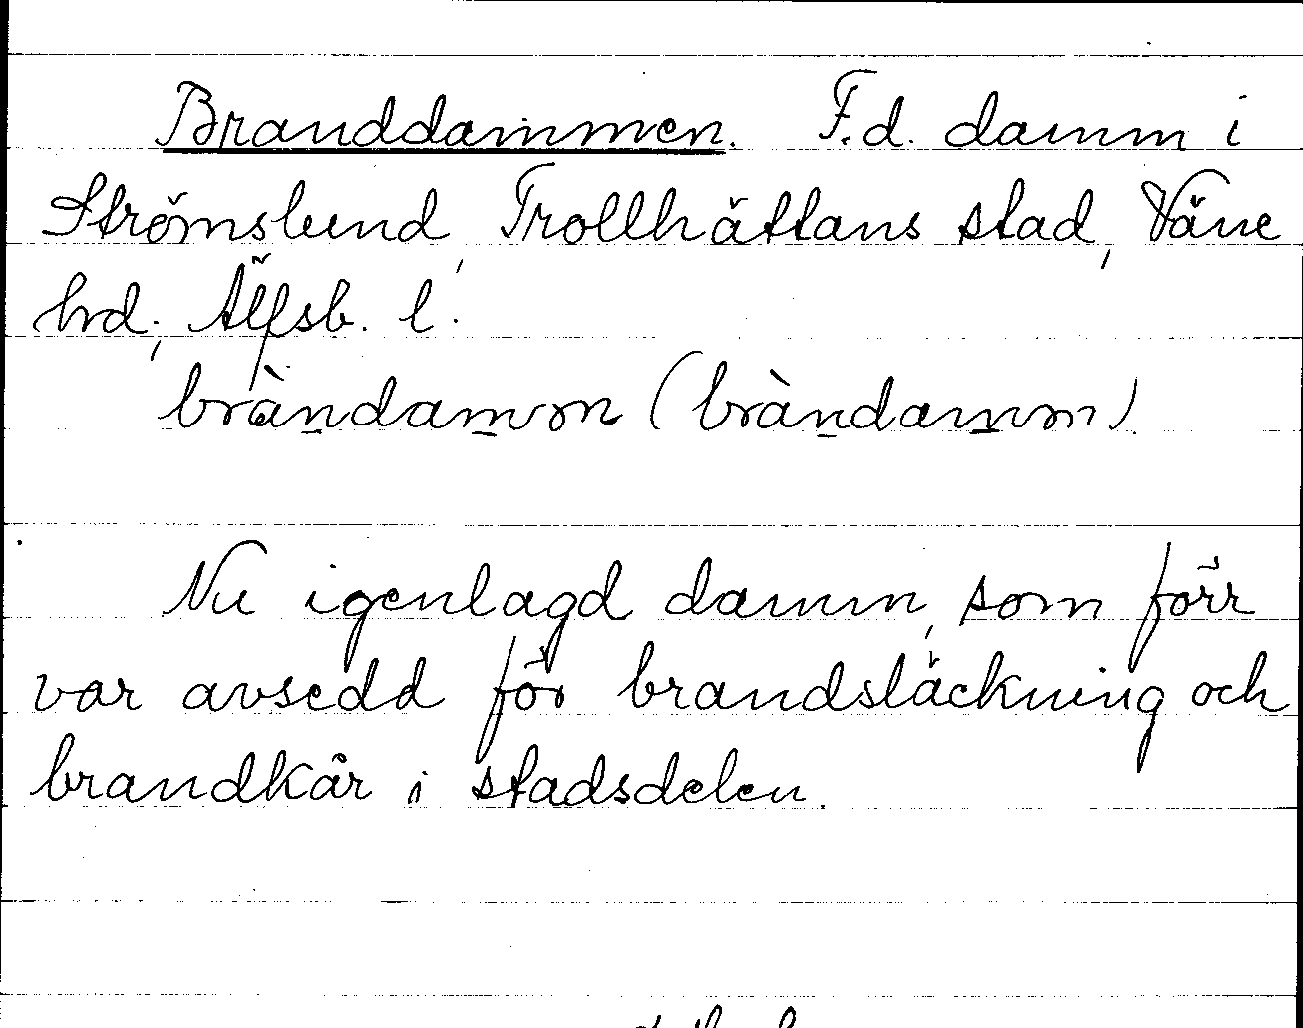 Branddammen. F.d. damm i
Strömslund, Trollhättans stad, Väne
hrd., Älfsb. l.
bràndamm (bràndamm)
Nu igenlagd damm, som förr
var avsedd för brandsläckning och
brandkår i stadsdelen.